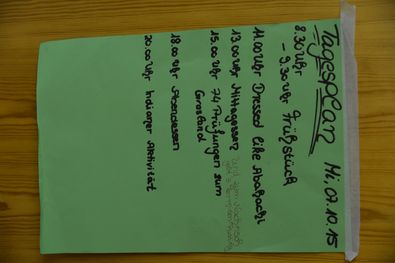 Tagesplan Mi, 07.10.15
8.30 Uhr
- 9.30 Uhr Frühstück
11.00 Uhr Dressed like Abahachi
13.00 Uhr Mittagessen
15.00 Uhr 74 Prüfungen zum
Grasland
18.00 Uhr Abendessen
20.00 Uhr Indianer Aktivität